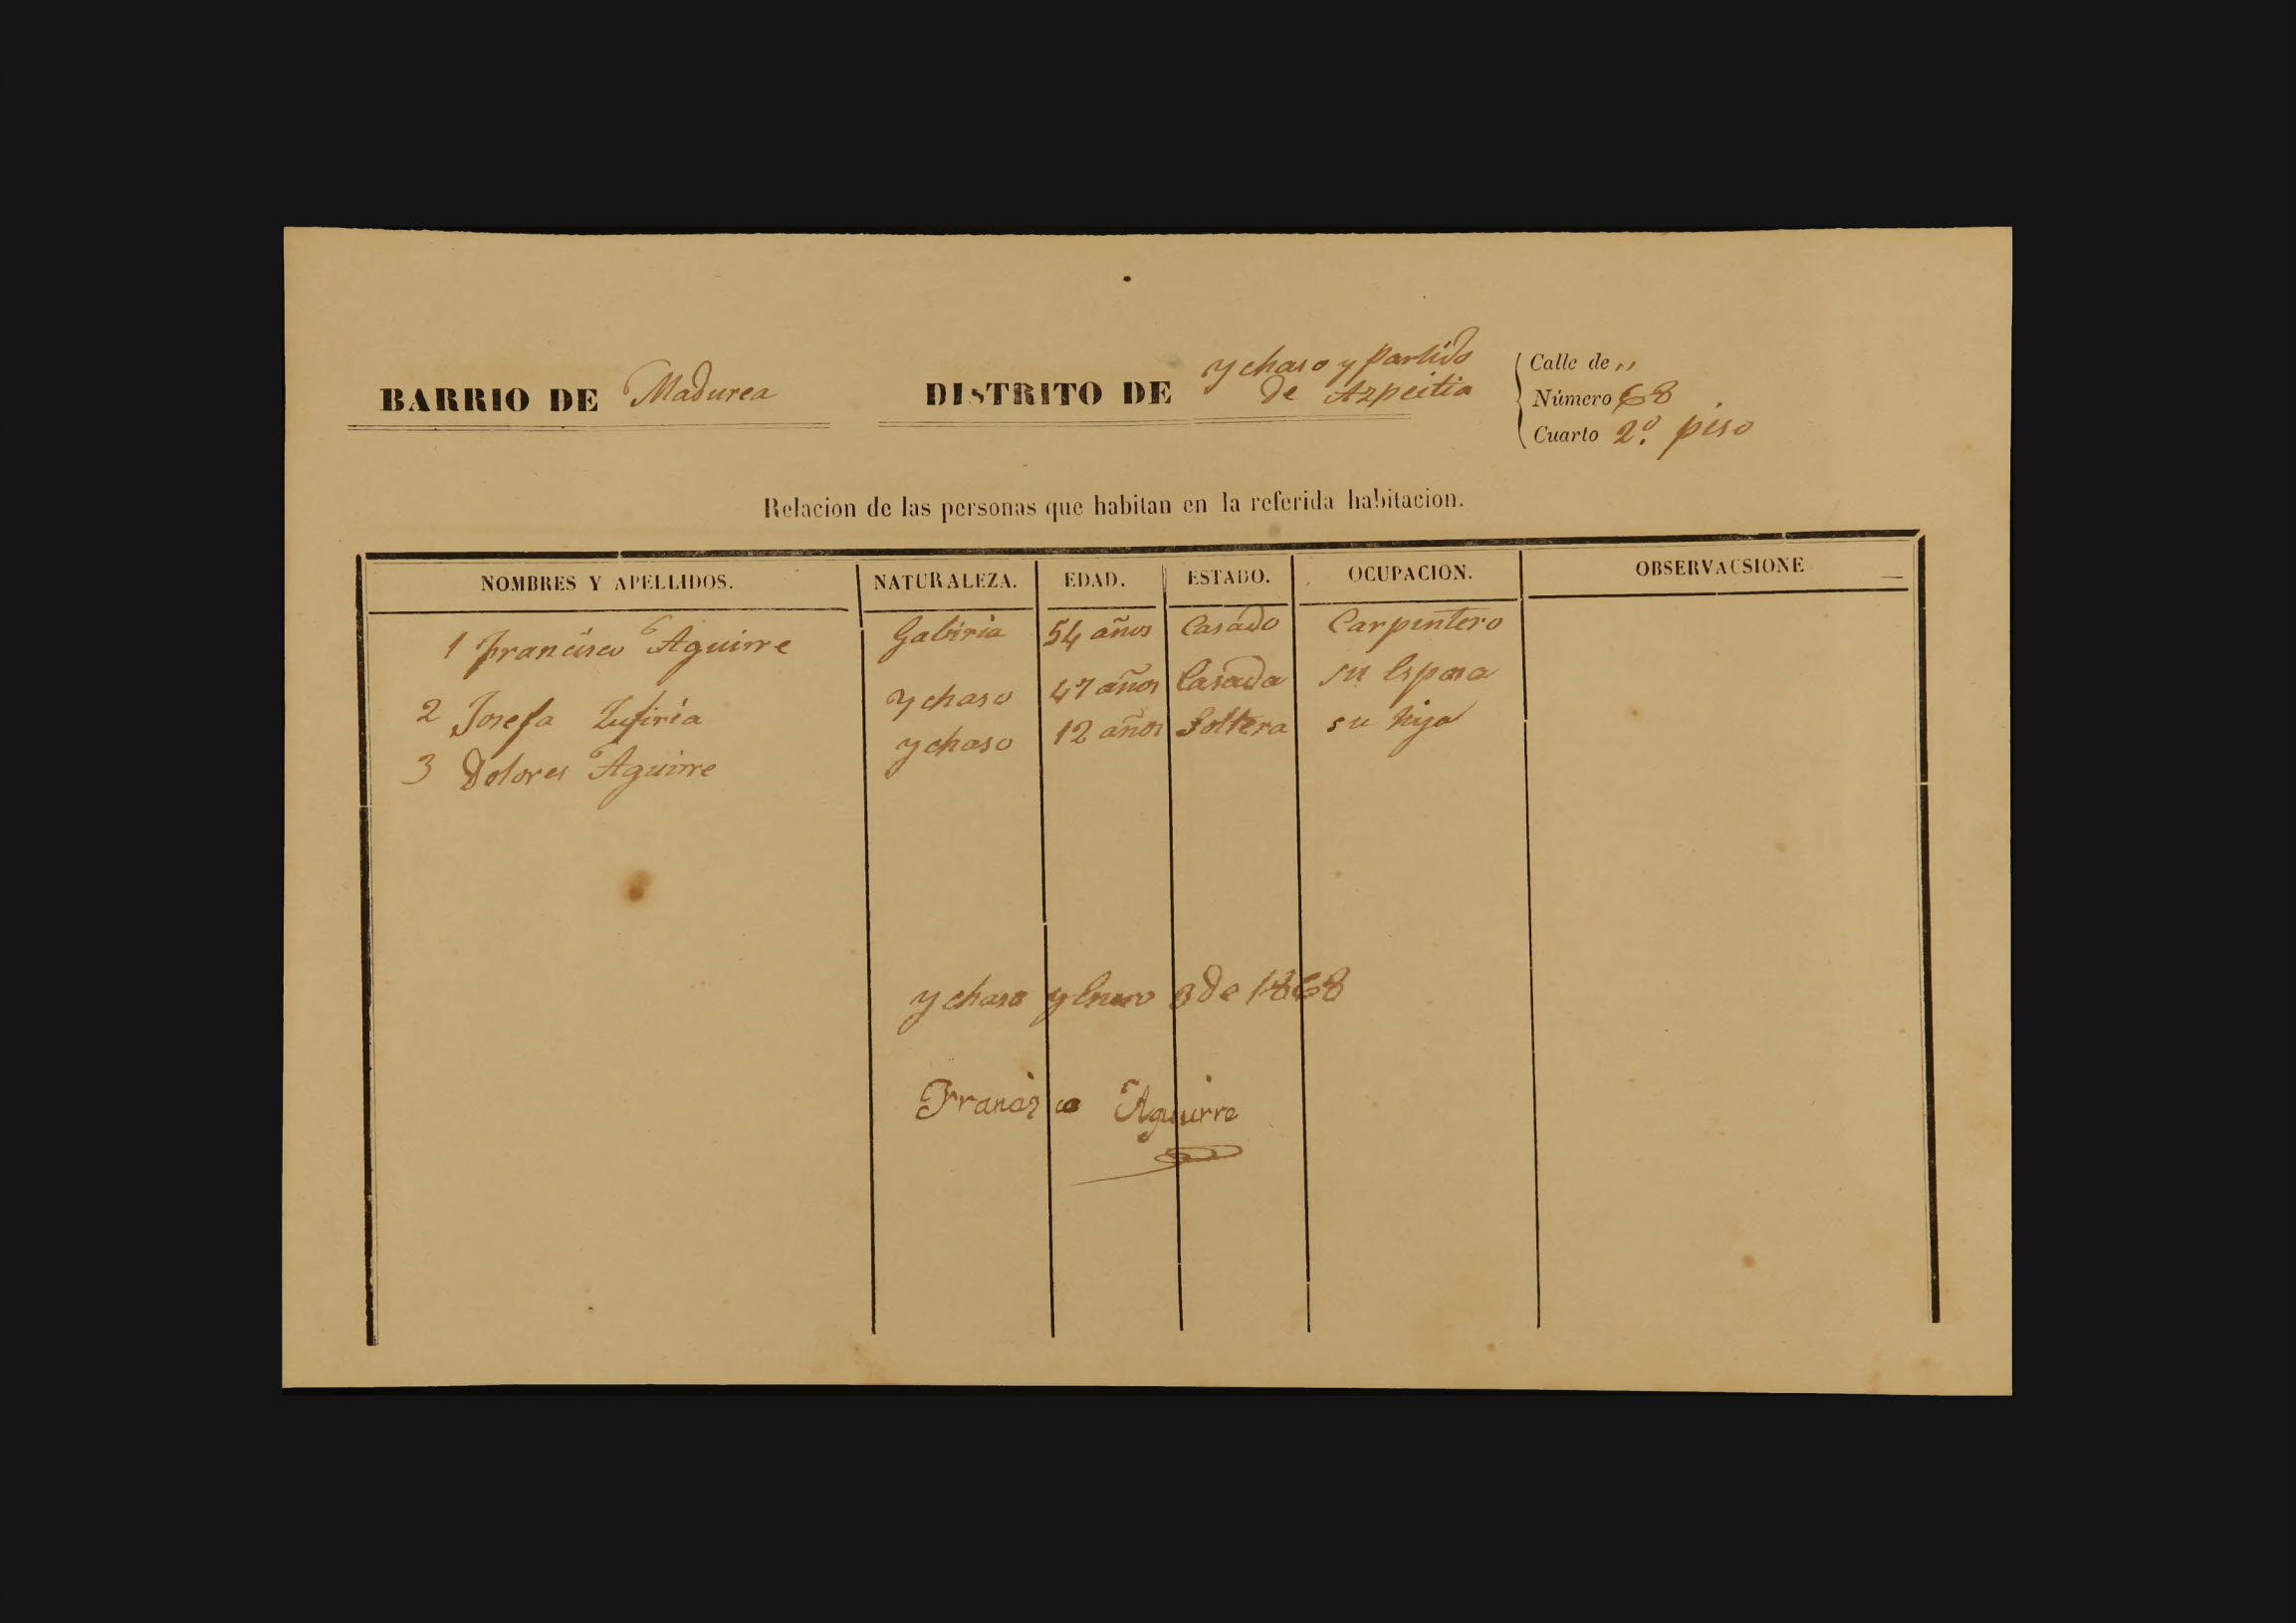 BARRIO DE Madurea DISTRITO DE ychaso y partido de Azpeitia
Calle de „
Número 68
Cuarto 2º. piso
Relacion de las personas que habitan en la referida habitacion.
NOMBRES Y APELLIDOS. NATURALEZA. EDAD. ESTADO. OCUPACION. OBSERVACSIONE
1 Francisco Aguirre Gabiria 54 años Casado Carpintero
2 Josefa Zufiria ychaso 47 años Casada su Esposa
3 Dolores Aguirre ychaso 12 años Soltera su hija
ychaso y Enero 3 de 1868
Francisco Aguirre